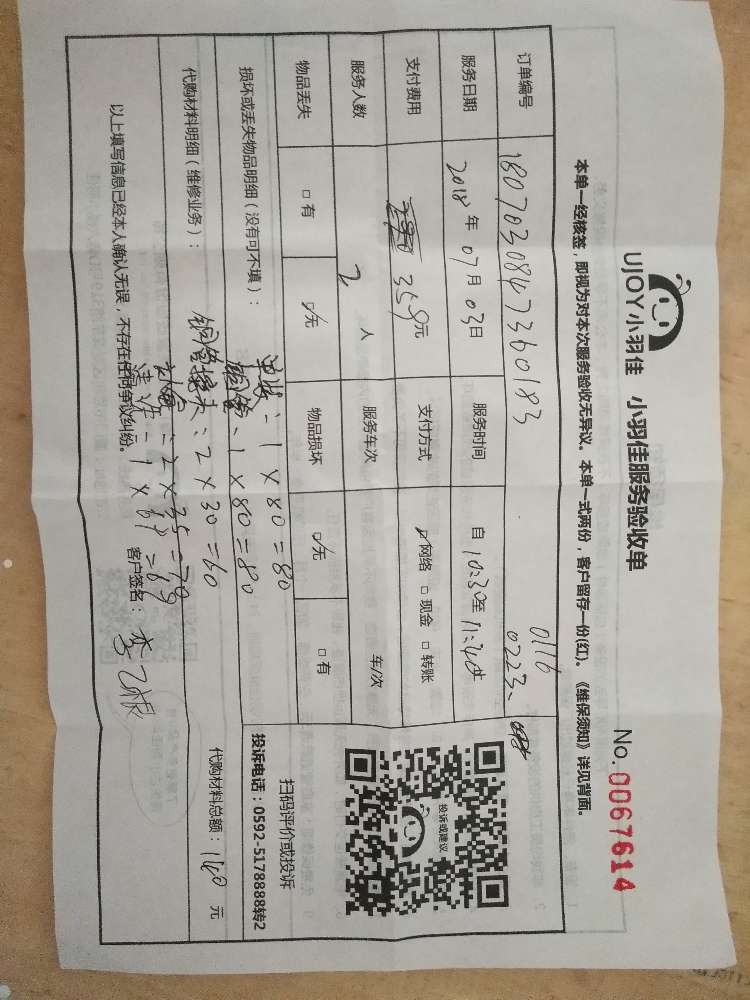 UJOY小羽佳 小羽佳服务验收单
No.0067614
本单一经核签，即视为对本次服务验收无异议。本单一式两份，客户留存一份(红)。《维保须知》详见背面。
订单编号 1807030847360183 0116
0223、
服务日期 2018年07月03日 服务时间 自10:30至11:40
支付费用 359元 支付方式 网络 □现金 □转账
服务人数 2人 服务车次 车/次
物品丢失 □有 无 物品损坏 无 □有
损坏或丢失物品明细（没有可不填）：
1×80=80
铜管：1×80=80
代购材料明细（维修业务）：
铜管接头：2×30=60
2×35=70
1×69=69
代购材料总额：140元
投诉或建议
扫码评价或投诉
投诉电话：0592-5178888转2
以上填写信息已经本人确认无误，不存在任何争议纠纷。 客户签名：